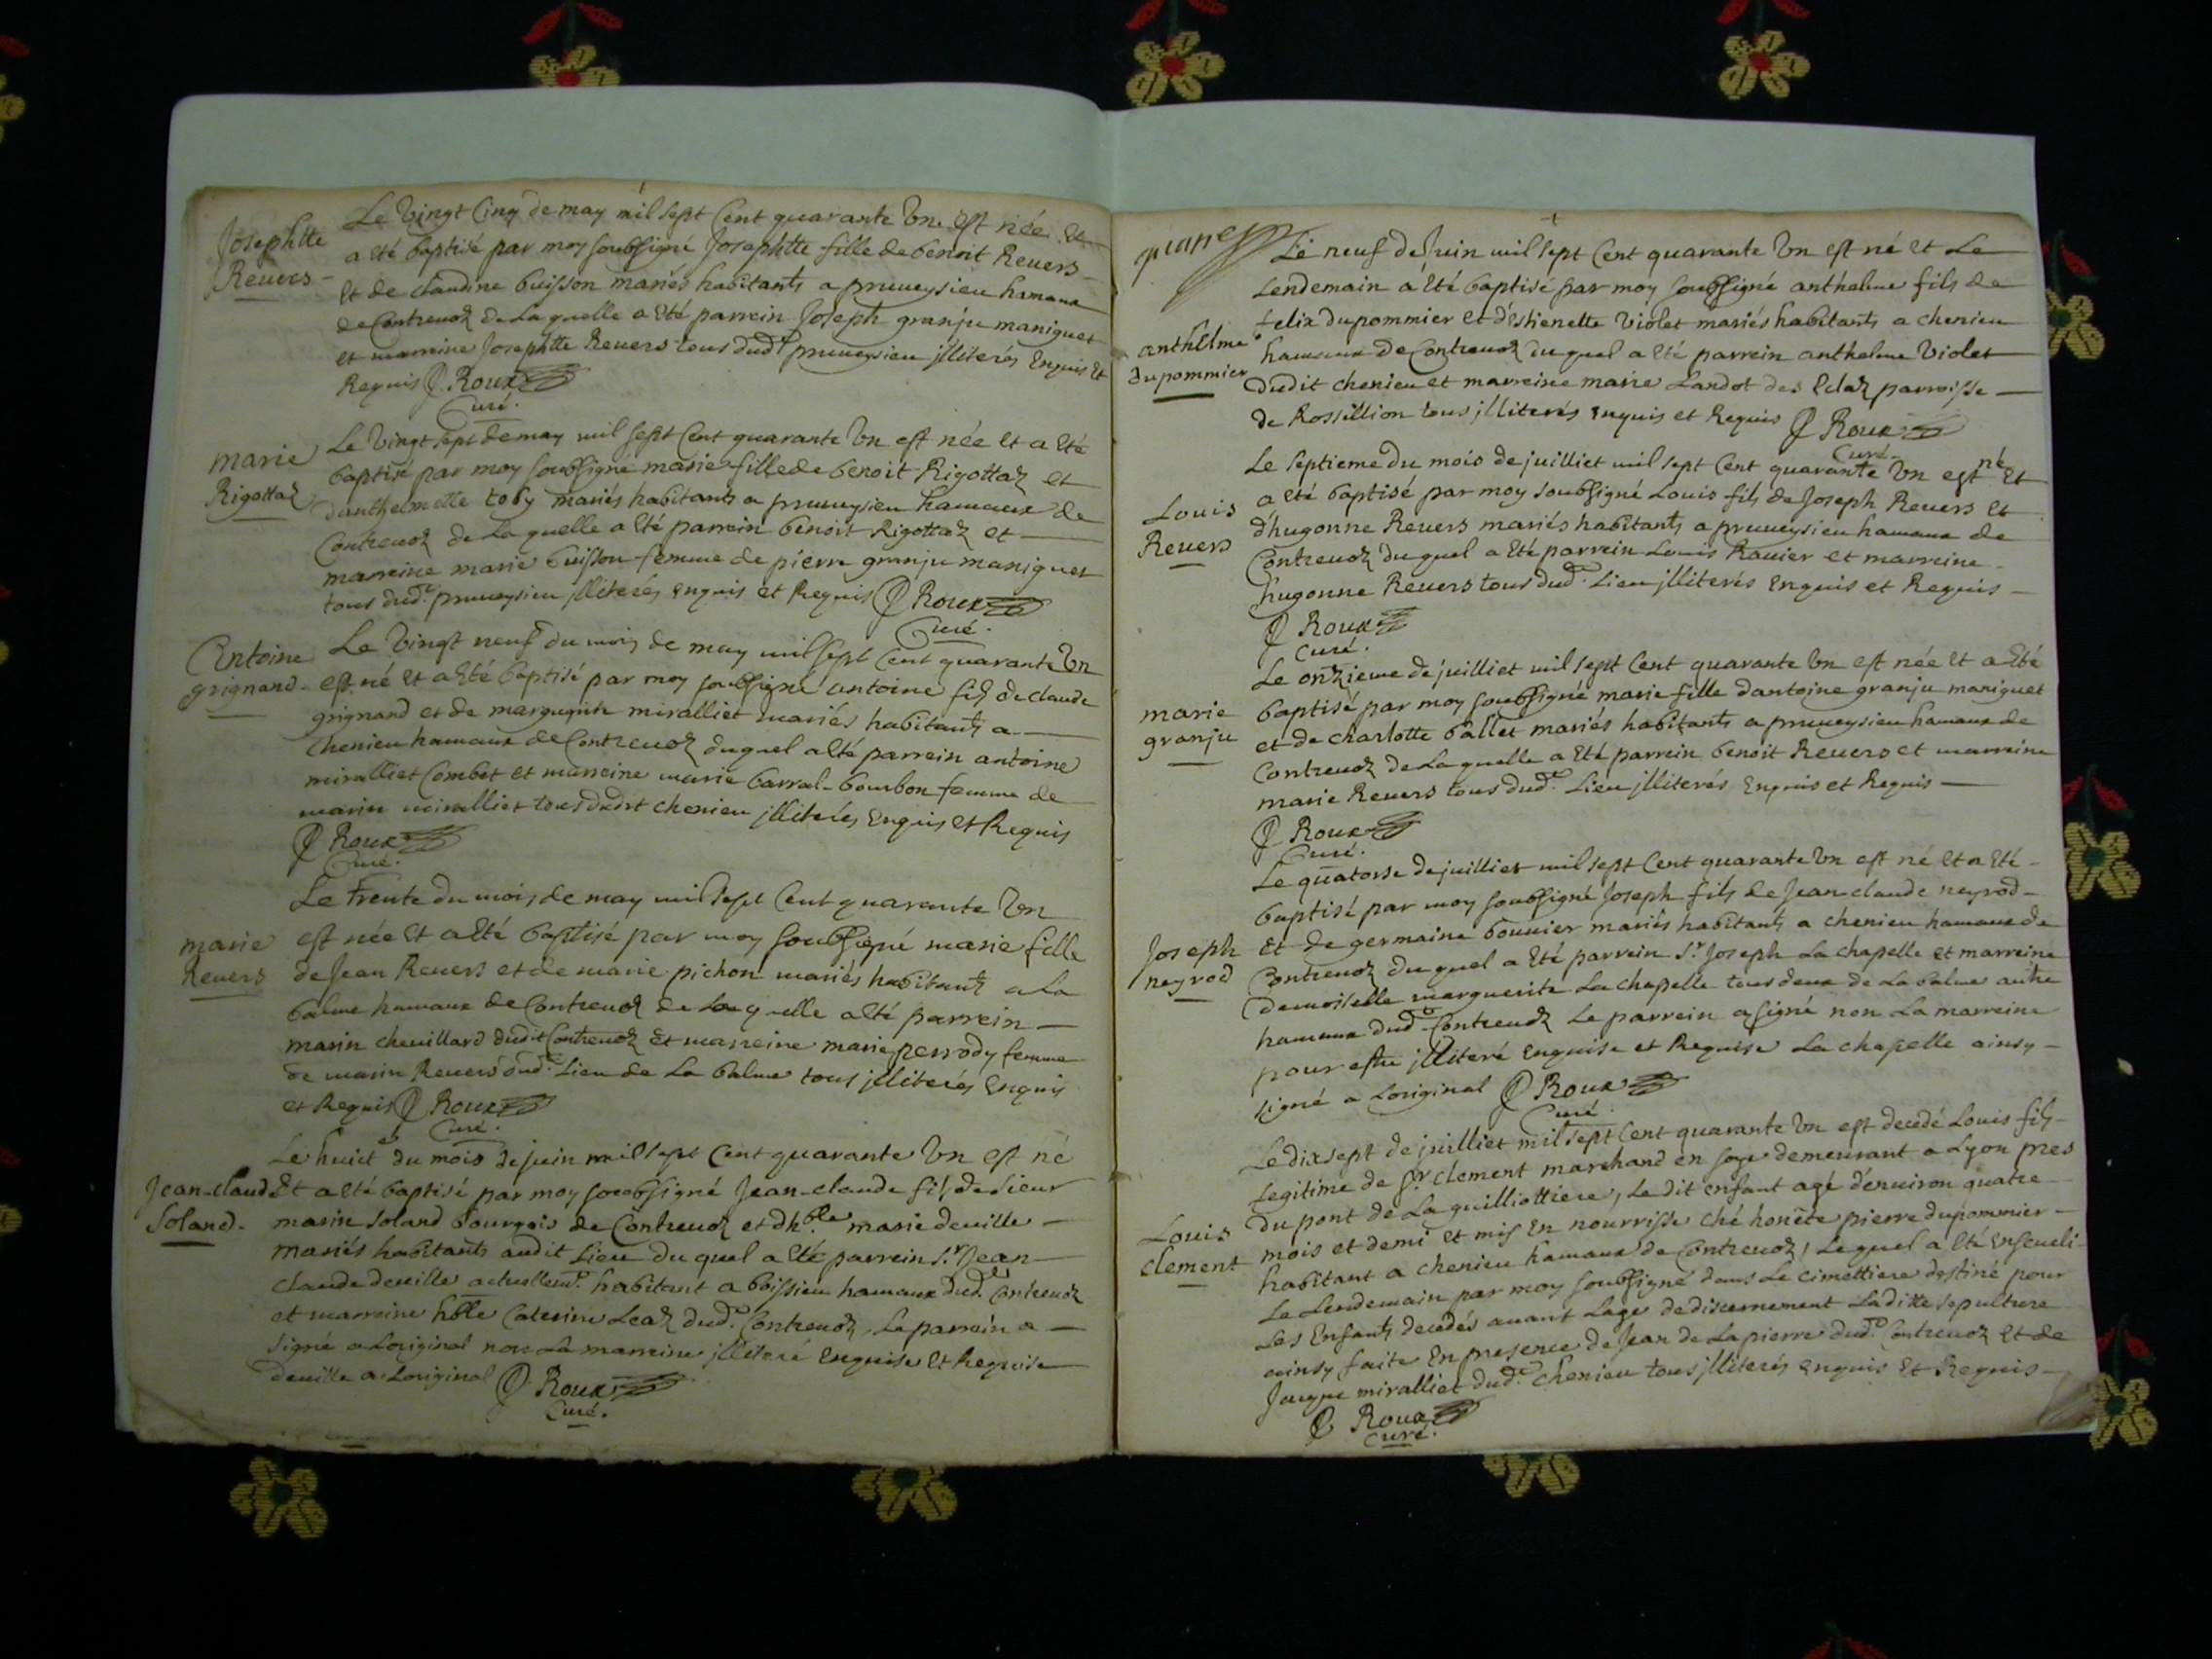 Josephtte
Reuers
Le Vingt Cinq de may mil sept Cent quarante Vn est née Et
a eté baptisé par moy soubsigné Josephtte fille de benoit Reuers
Et de claudine buisson mariés habitants a pruueysieu hamaux
de Contreuoz de La quelle a eté parrein Joseph granju maniguet
et marreine Josephtte Reuers tous dud.t pruueysieu jlliterés Enquis Et
Requis Roux
Curé.
marie
Rigottaz
Le Vingt sept de may mil sept Cent quarante Vn est née Et a eté
baptisé par moy soubsigné marie fille de benoit Rigottaz et
d'anthelmette toby mariés habitants a pruueysieu hamaux de
Contreuoz de La quelle a eté parrein benoit Rigottaz et
marreine marie buisson femme de pierre granju maniguet
tous dud.t pruueysieu jlliterés enquis et Requis Roux
Curé.
Antoine
grignand
Le Vingt neuf du mois de may mil sept Cent quarante Vn
est né Et a eté baptisé par moy soubsigné antoine fils de claude
grignand et de marguerite miralliet mariés habitants a
Chenieu hamaux de Contreuoz duquel a eté parrein antoine
miralliet Combet et marreine marie barral-bourbon femme de
marin miralliet tous dudit chenieu jlliterés Enquis Et Requis
Roux
Curé.
marie
Reuers
Le Trente du mois de may mil sept Cent quarante Vn
est née Et a eté baptisé par moy soubsigné marie fille
de Jean Reuers et de marie pichon mariés habitants a La
balme hamaux de Contreuoz de Laquelle a eté parrein
marin cheuillard dudit Contreuoz Et marreine marie perrody femme
de marin Reuers dud.t Lieu de La balme tous jlliterés Enquis
et Requis Roux
Curé.
Jean-claude
Soland
Le huict du mois de juin mil sept Cent quarante Vn est né
Et a eté baptisé par moy soubsigné Jean-claude fils de Sieur
marin Soland bourgois de Contreuoz et d'h.ble marie deuille
mariés habitants audit Lieu du quel a eté parrein S.r Jean
claude deuille actuellem.t habitant a boissieu hamaux dud.t Contreuoz
et marreine h.ble Caterine Leaz dud.t Contreuoz, Le parrein a
signé a Loriginal non La marreine jlliteré Enquise Et Requise
deuille a Loriginal Roux
Curé.
anthelme
dupommier
Le neuf de Juin mil sept Cent quarante Vn est né Et Le
Lendemain a eté baptisé par moy soubsigné anthelme fils de
felix dupommier et d'Estienette Violet mariés habitants a chenieu
hamaux de Contreuoz du quel a eté parrein anthelme Violet
dudit chenieu et marreine marie Landot des Eclaz parroisse
de Rossillion tous jlliterés enquis et Requis Roux
Curé.
Louis
Reuers
Le septieme du mois de juilliet mil sept Cent quarante Vn est né Et
a eté baptisé par moy soubsigné Louis fils de Joseph Reuers Et
d'hugonne Reuers mariés habitants a pruueysieu hamaux de
Contreuoz du quel a eté parrein Louis Rauier et marreine
hugonne Reuers tous dud.t Lieu jlliterés Enquis et Requis
Roux
Curé.
marie
granju
Le onzieme de juilliet mil sept Cent quarante Vn est née Et a eté
baptisé par moy soubsigné marie fille dantoine granju maniguet
et de charlotte ballet mariés habitants a pruueysieu hamaux de
Contreuoz de Laquelle a eté parrein benoit Reuers et marreine
marie Reuers tous dud.t Lieu jlliterés Enquis et Requis
Roux
Curé.
Joseph
neyrod
Le quatorse de juilliet mil sept Cent quarante Vn est né Et a eté
baptisé par moy soubsigné Joseph fils de Jean-claude neyrod
Et de germaine bouuier mariés habitants a chenieu hamaux de
Contreuoz du quel a eté parrein S.r Joseph La chapelle et marreine
demoiselle marguerite La chapelle tous deux de La balme autre
hamaux dud.t Contreuoz Le parrein a signé non La marreine
pour estre jlliteré Enquise et Requise La chapelle ainsy
signé a Loriginal Roux
Curé
Louis
clement
Le dixsept de juilliet mil sept Cent quarante Vn est decedé Louis fils
Legitime de S.r clement marchand en soye demeurant a Lyon pres
du pont de La guilliottiere, Le dit enfant agé d'enuiron quatre
mois et demi et mis En nourrisse ché honête pierre dupommier
habitant a chenieu hamaux de Contreuoz, Lequel a eté enseueli
Le Lendemain par moy soubsigné dans Le cimettiere destiné pour
Les Enfants decedés auant Lage de discernement Laditte sepulture
ainsy faite En presence de Jean de Lapierre dud.t Contreuoz Et de
Jacque miralliet dud.t chenieu tous jlliterés enquis Et Requis
Roux
Curé.